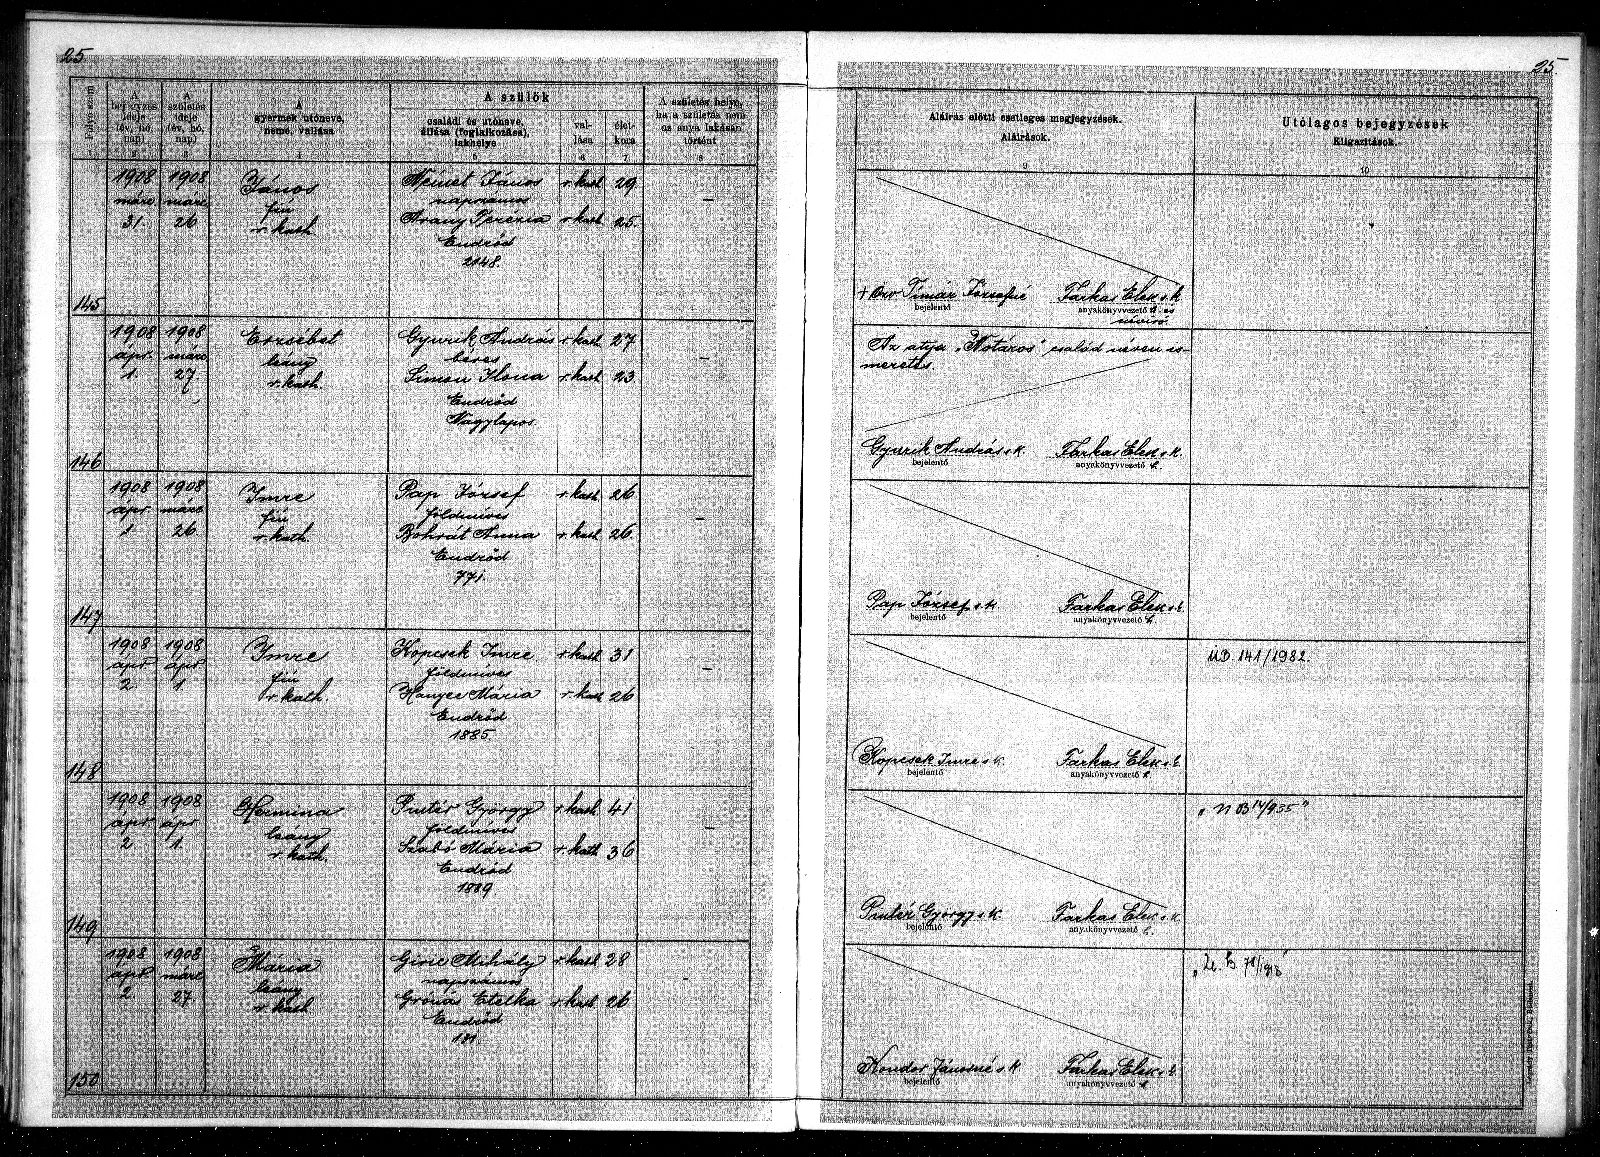 25
25.
A bejegyzés ideje (év, hó, nap)
A születés ideje (év, hó, nap)
A gyermek utóneve, neme, vallása
A szülők
családi és utóneve, állása (foglalkozása), lakhelye
vallása
életkora
A születés helye, ha a születés nem az anya lakásán történt
Aláírás előtti esetleges megjegyzések.
Aláírások.
Utólagos bejegyzések
Kiigazítások.
145
1908 márc 31.
1908 márc 26
János
fiú
r. kath.
Német János r. kath 29
napszámos
Arany Terézia r. kath 25.
Endrőd
2148.
–
+ özv Tímár Józsefné
bejelentő
Farkas Elek s. k
anyakönyvvezető h. és
névíró
146
1908 ápr. 1.
1908 márc 27.
Erzsébet
leány
r. kath.
Gyurik András r. kath 27
béres
Simon Ilona r. kath 23
Endrőd
Nagylapos
–
Az atya „Notáros" család néven is-
meretes.
Gyurik András s. k.
bejelentő
Farkas Elek s. k.
anyakönyvvezető h.
147
1908 ápr 1
1908 márc 26.
Imre
fiú
r. kath.
Pap József r. kath 26
földmíves
Bohrát Anna r. kath 26.
Endrőd
771.
–
Pap József s. k.
bejelentő
Farkas Elek s. k.
anyakönyvvezető h.
148
1908 ápr 2
1908 ápr 1.
Imre
fiú
r. kath.
Kopcsek Imre r. kath 31
földmíves
Hanyec Mária r. kath 26
Endrőd
1885.
–
Kopcsek Imre s. k.
bejelentő
Farkas Elek s. k.
anyakönyvvezető h.
UD. 141/1982.
149
1908 ápr 2
1908 ápr. 1.
Hermina
leány
r. kath.
Pintér György r. kath 41
földmíves
Szabó Mária r. kath 36
Endrőd
1889
–
Pintér György s. k.
bejelentő
Farkas Elek s. k.
anyakönyvvezető h.
150
1908 ápr 2
1908 márc 27.
Mária
leány
r. kath
Giric Mihály r. kath 28
napszámos
Grónás Etelka r. kath 26
Endrőd
181
–
Kondor Jánosné s. k
bejelentő
Farkas Elek s. k.
anyakönyvvezető h.